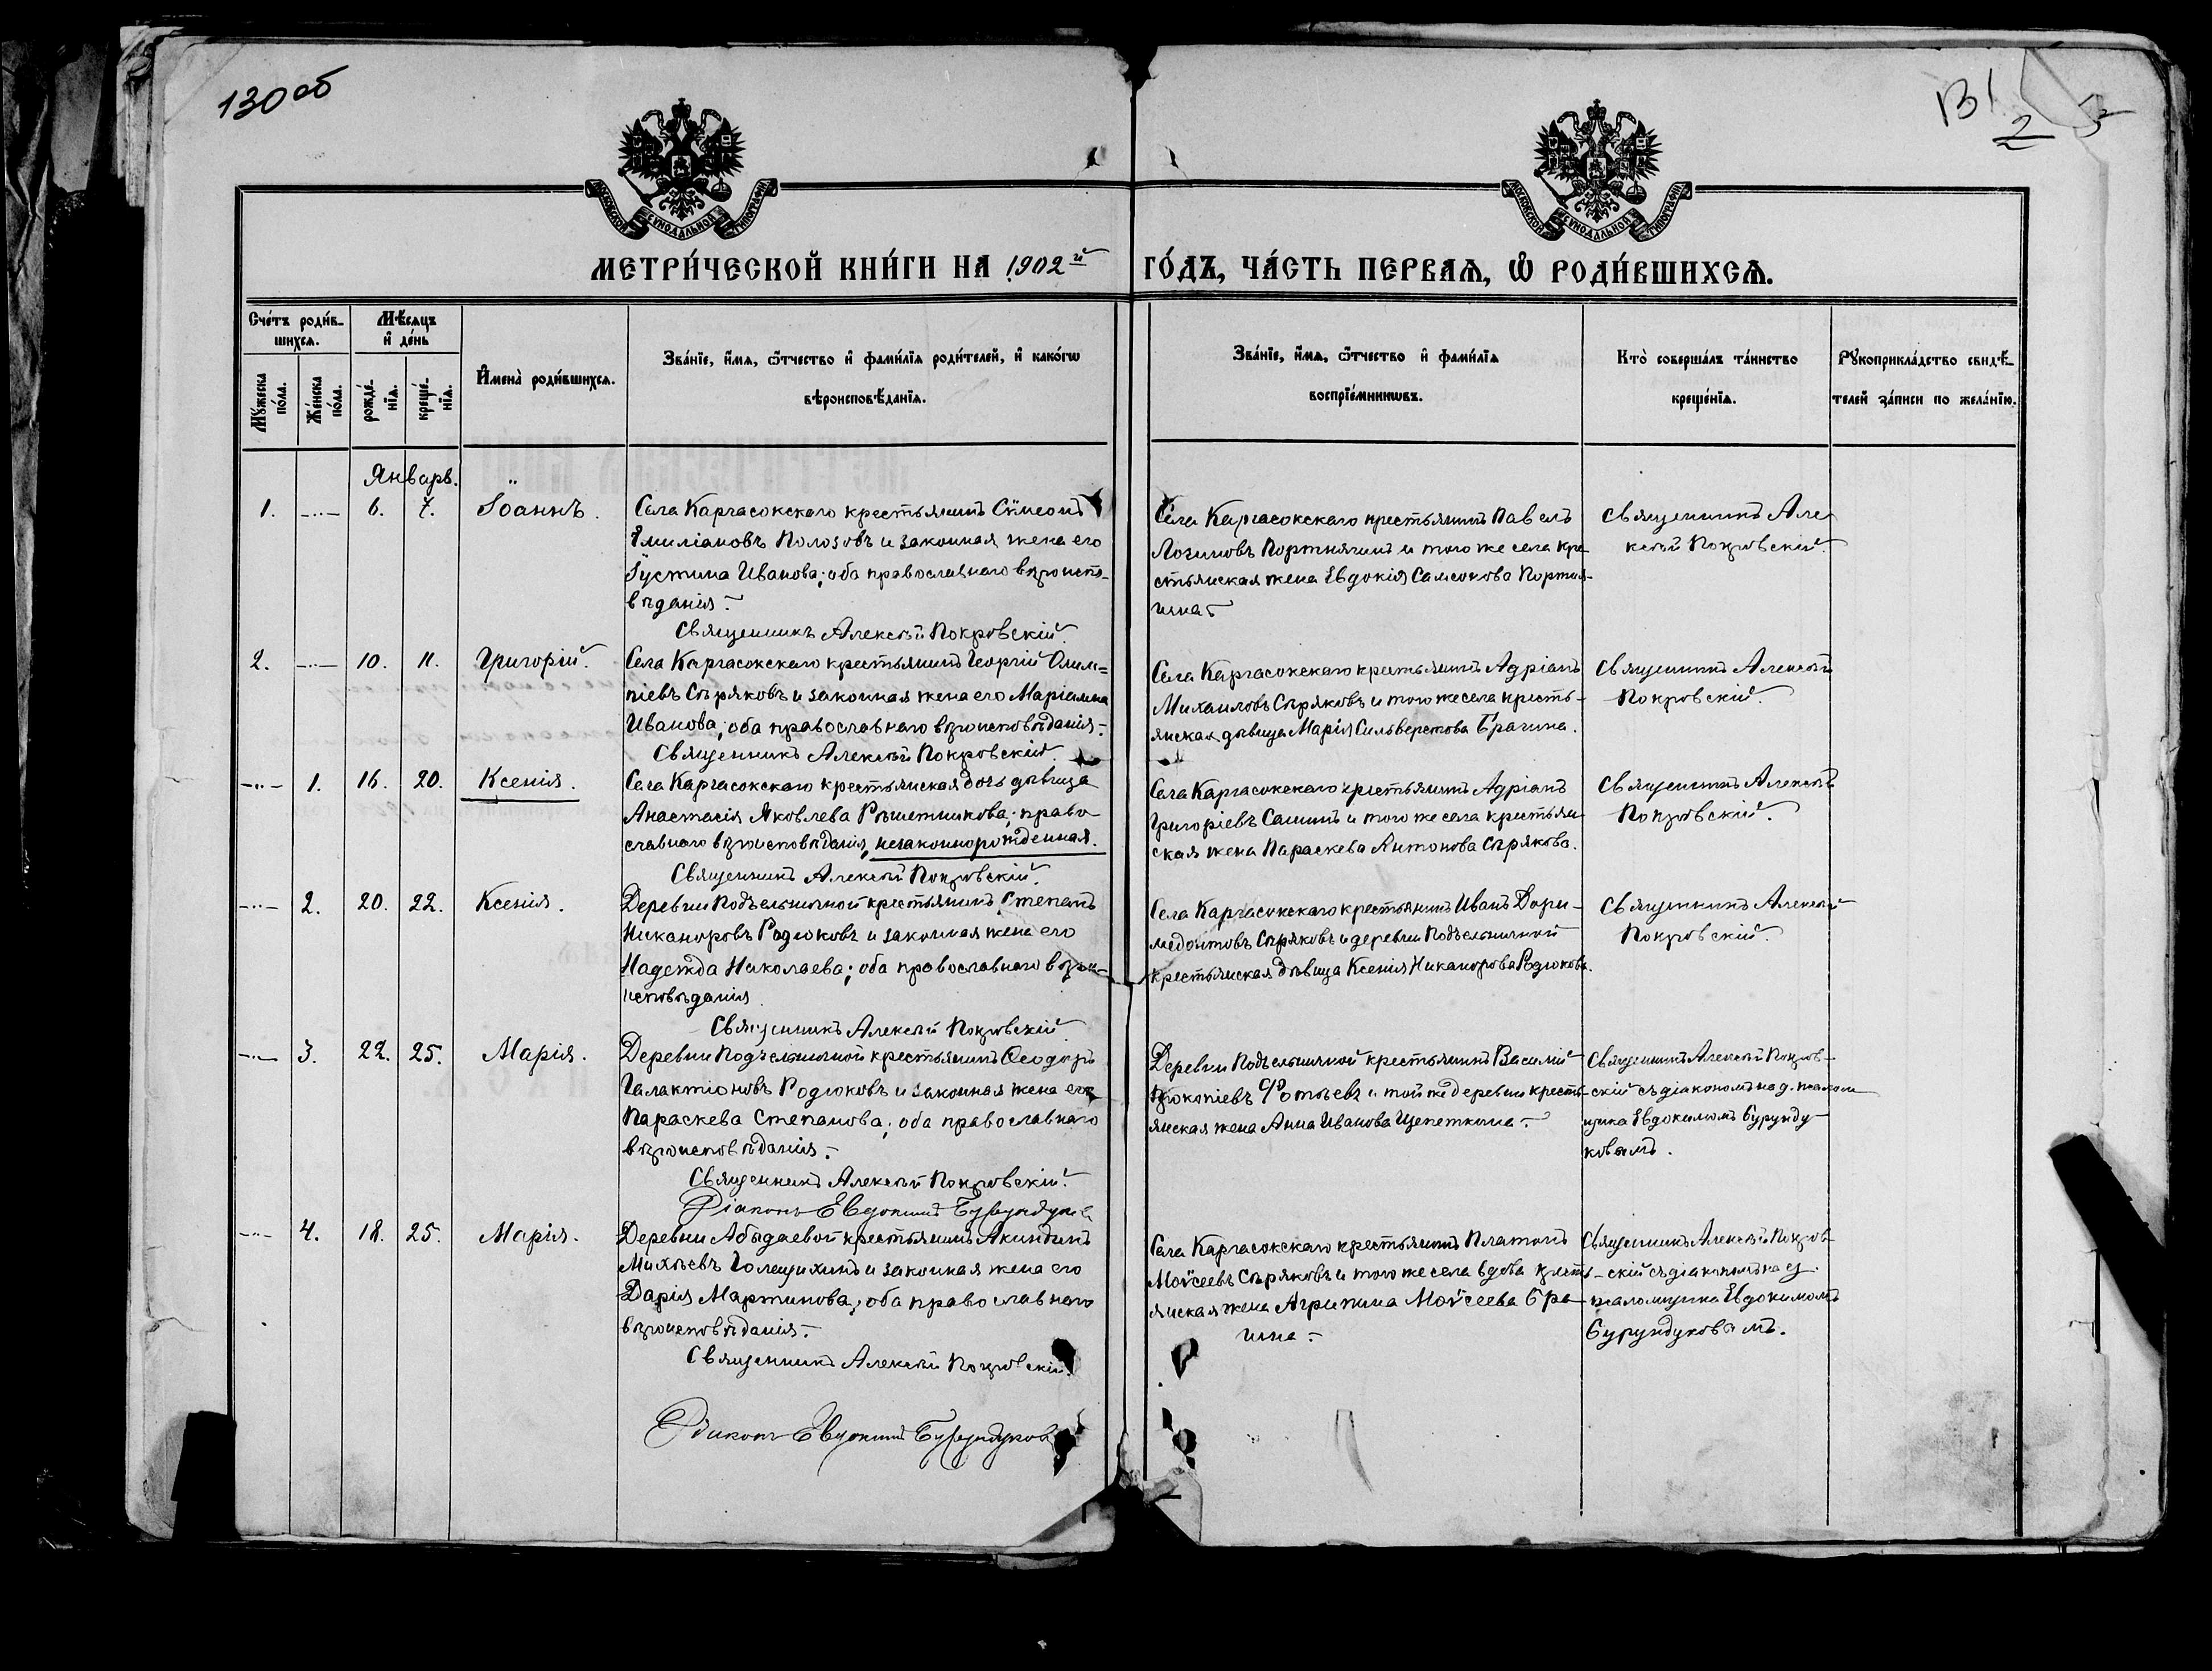 130об
131
2
МЕТРИ́ЧЕСКОЙ КНИ́ГИ НА 1902й ГО́ДЪ, ЧА́СТЬ ПЕРВАѦ, Ѽ РОДИ́ВШИХСѦ.
Сче́тъ роди́в-
шихсѧ.
Мѣ́сѧцъ
и҆ де́нь
Мꙋ́жеска
по́ла.
Же́нска
по́ла.
рожде́-
нїѧ.
креще́-
нїѧ.
И҆мена̀ роди́вшихсѧ.
Зва́нїе, и҆́мѧ, ѻ҆́тчество и҆ фами́лїѧ роди́телей, и҆ како́гѡ
вѣроисповѣ́данїѧ.
Зва́нїе, и҆́мѧ, ѻ҆́тчество и҆ фами́лїѧ
воспрїе́мникѡвъ.
Кто̀ соверша́лъ та́инство
креще́нїѧ.
Рꙋкоприкла́дство свидѣ́-
телей за́писи по жела́нїю.
Январь.
1. 6. 7. Іоаннъ.
Села Каргасокскаго крестьянинъ Сѵмеонъ
Емиліановъ Полозовъ и законная жена его
Іустина Иванова; оба православнаго вѣроиспо-
вѣданія.
Священникъ Алексѣй Покровскій.
Села Каргасокскаго крестьянинъ Павелъ
Логиновъ Портнягинъ и того же села кре-
стьянская жена Евдокія Самсонова Портня-
гина
Священникъ Але
ксѣй Покровскій.
2. 10. 11. Григорій.
Села Каргасокскаго крестьянинъ Георгій Олим-
піевъ Сыряковъ и законная жена его Маріамна
Иванова; оба православнаго вѣроисповѣданія.
Священникъ Алексѣй Покровскій
Села Каргасокскаго крестьянинъ Адріанъ
Михаиловъ Сыряковъ и того же села кресть-
янская дѣвица Марія Сильверстова Брагина.
Священникъ Алексѣй
Покровскій.
1. 16. 20. Ксенія.
Села Каргасокскаго крестьянская дочь дѣвица
Анастасія Яковлева Рѣшетникова; право
славнаго вѣроисповѣданія, незаконнорожденная.
Священникъ Алексѣй Покровскій.
Села Каргасокскаго крестьянинъ Адріанъ
Григоріевъ и того же села крестьян
ская жена Параскева Антонова Сырякова.
Священникъ Алексѣй
Покровскій.
2. 20. 22. Ксенія.
Деревни Подъельничной крестьянинъ Степанъ
Никаноровъ Родюковъ и законная жена его
Надежда Николаева; оба православнаго вѣро-
исповѣданія
Священникъ Алексѣй Покровскій
Села Каргасокскаго крестьянинъ Иванъ Дори-
медонтовъ Сыряковъ и деревни Подъельничной
крестьянская дѣвица Ксенія Никанорова Родюкова.
Священникъ Алексѣй
Покровскій.
3. 22. 25. Марія.
Деревни Подъельничной крестьянинъ Ѳеодоръ
Галактіоновъ Родюковъ и законная жена его
Параскева Степанова; оба православнаго
вѣроисповѣданія.
Священникъ Алексѣй Покровскій.
Діаконъ Евдокимъ Бурундуковъ
Деревни Подъельничной крестьянинъ Василій
Прокопіевъ Фотѣевъ и той же деревни кресть-
янская жена Анна Иванова Щепеткина.
Священникъ Алексѣй Покров-
скій съ діакономъ на д. псалом
щика Евдокимомъ Бурунду-
ковымъ.
4. 18. 25. Марія.
Деревни Абыдаевой крестьянинъ Акиндинъ
Михѣевъ Голещихинъ и законная жена его
Дарія Мартинова; оба православнаго
вѣроисповѣданія.
Священникъ Алексѣй Покровскій.
Діаконъ Евдокимъ Бурундуковъ
Села Каргасокскаго крестьянинъ Платонъ
Моѵсеевъ Сыряковъ и того же села вдова кресть-
янская жена Агрипина Моѵсеева Бра-
гина.
Священникъ Алексѣй Покров-
скій съ діакономъ на д.
псаломщика Евдокимомъ
Бурундуковымъ.